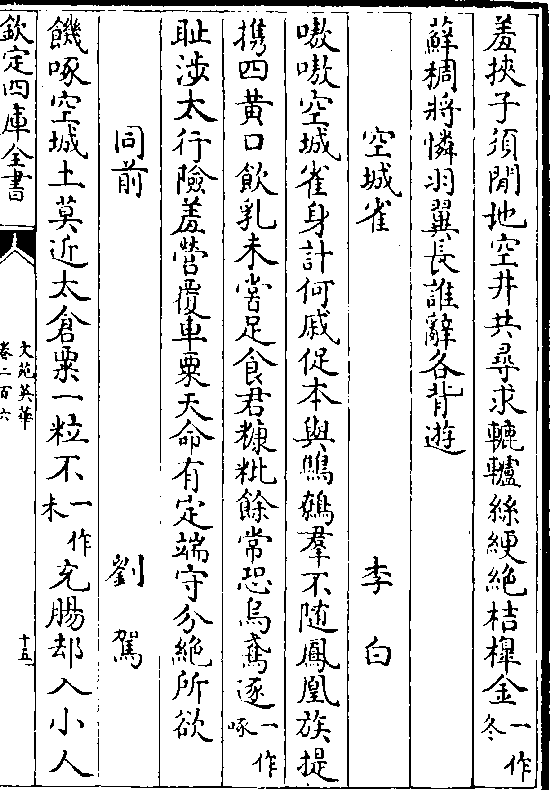 羞挾子須閒地空井共尋求轆轤絲綆絶桔橰金一作冬
蘚稠將憐羽翼長誰辭各背遊
空城雀 李白
嗷嗷空城雀身計何戚促本與鷦鷯羣不隨鳳凰族提
携四黄口飲乳未嘗足食君糠粃餘常恐烏鳶逐一作啄
耻涉太行險羞營覆車粟天命有定端守分絶所欲
同前 劉駕
饑啄空城土莫近太倉粟一粒不一作未充腸却入小人
欽定四庫全書
文苑英華
卷二百六
十五